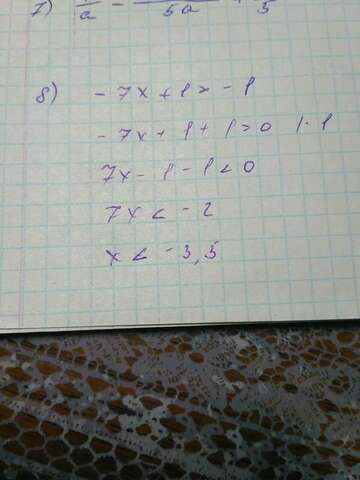 7) a - 5a + 5
8) - 7x + 1 > - 1
- 7x + 1 + 1 > 0 | · 1
7x - 1 - 1 < 0
7x < - 2
x < - 3,5